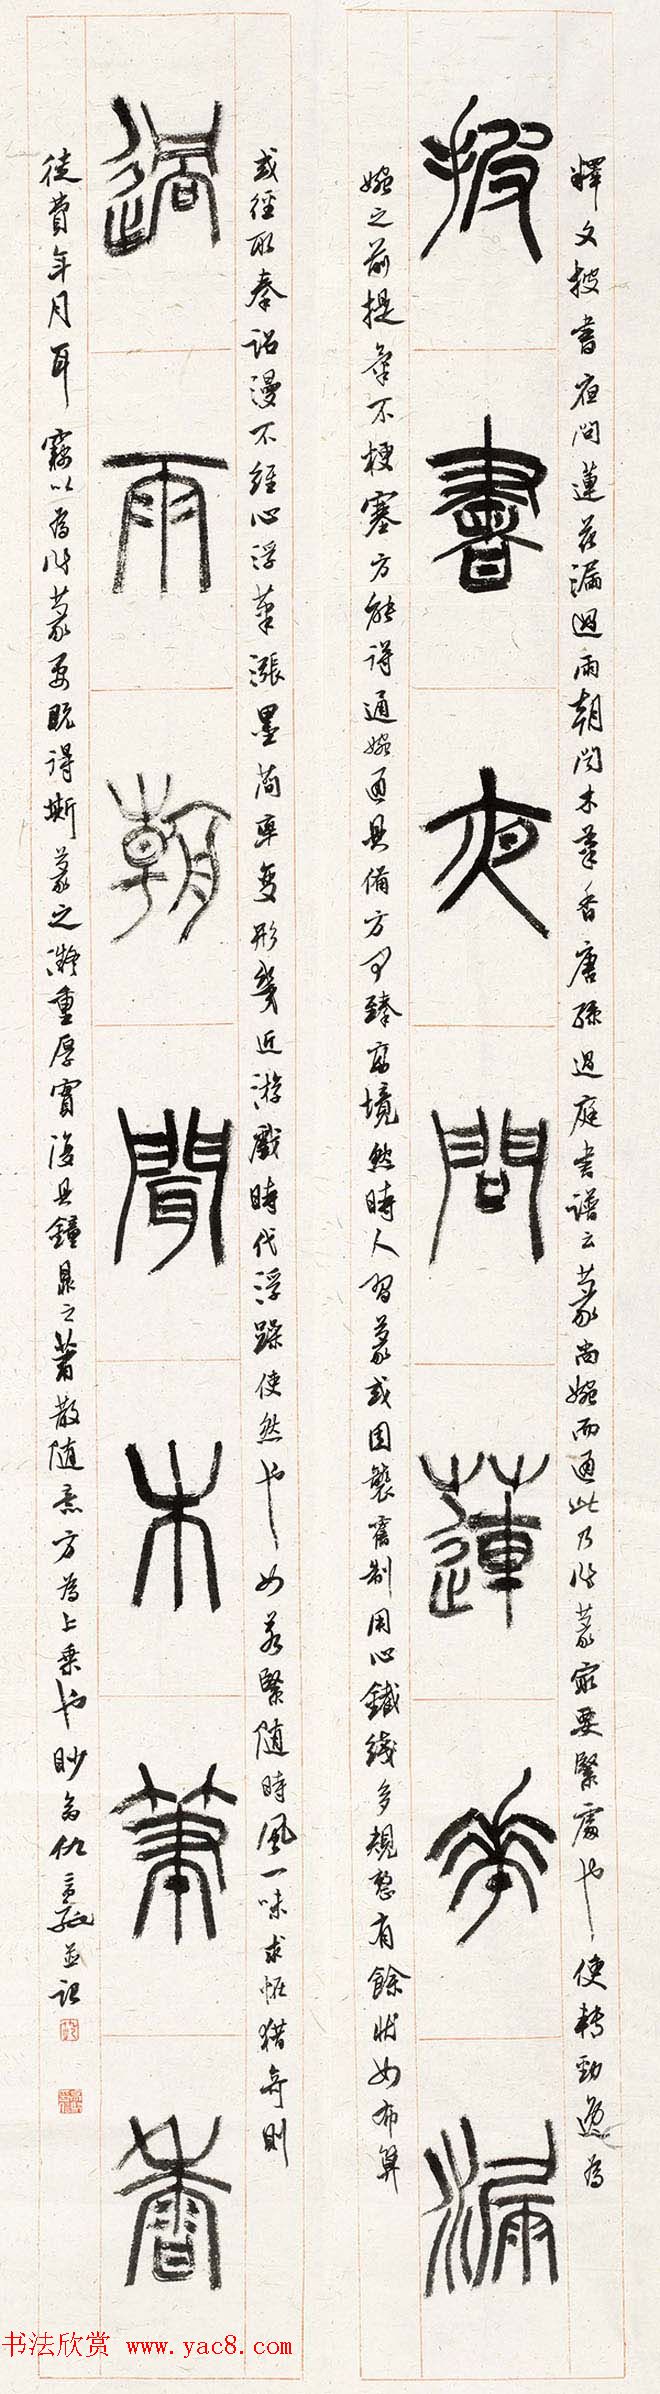 披書夜問蓮花漏
過雨朝聞木筆香
釋文披書夜問蓮花漏過雨朝聞木筆香唐孫過庭書譜云篆尚婉而通此乃作篆家要緊處也使轉勁逸為
婉之前提筆不梗塞方能得通婉通具備方可臻高境然時人習篆或因襲舊制用心鐵綫多規整有餘狀如布算
或徑取秦詔漫不經心浮筆漲墨簡率變形幾近游戲時代浮躁使然也如若緊隨時風一味求怪獵奇則
徒費年月耳竊以為作篆要既得斯篆之凝重厚實復具鐘鼎之蕭散隨意方為上乘也并記
书法欣赏 www.yac8.com